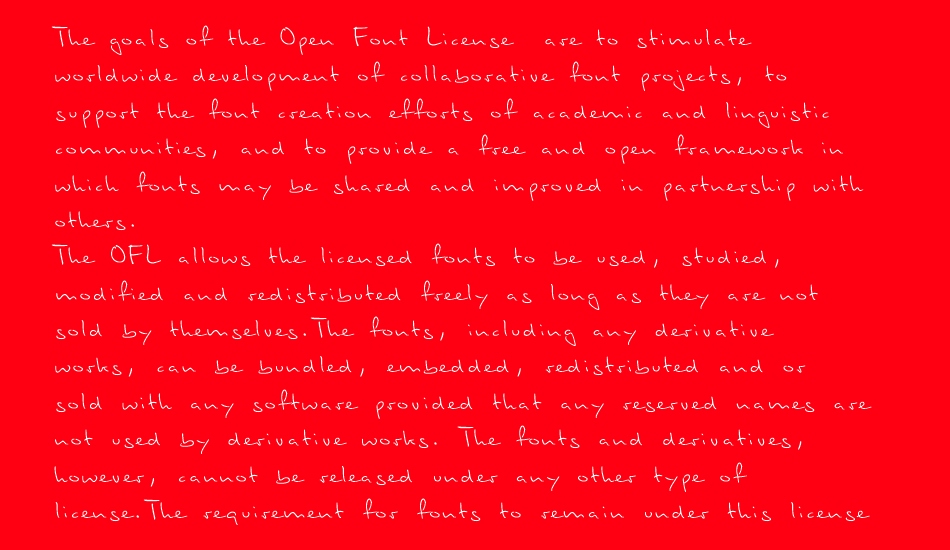 The goals of the Open Font License are to stimulate
worldwide development of collaborative font projects, to
support the font creation efforts of academic and linguistic
communities, and to provide a free and open framework in
which fonts may be shared and improved in partnership with
others.
The OFL allows the licensed fonts to be used, studied,
modified and redistributed freely as long as they are not
sold by themselves.The fonts, including any derivative
works, can be bundled, embedded, redistributed and or
sold with any software provided that any reserved names are
not used by derivative works. The fonts and derivatives,
however, cannot be released under any other type of
license.The requirement for fonts to remain under this license